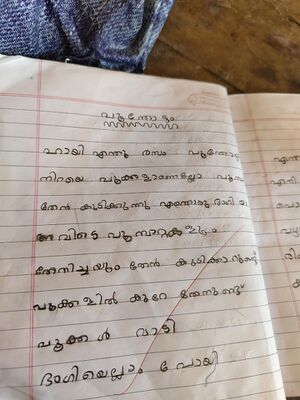 പൂന്തോട്ടം
ഹായി എന്തു രസം പൂന്തോട്ട
നിറയെ പൂക്കളാണല്ലോ
തേൻ കുടിക്കുന്നു എന്തൊരു ഭംഗി
അവിടെ പൂമ്പാറ്റകളും
തേനീച്ചയും തേൻ കുടിക്കാനുണ്ട്
പൂക്കളിൽ കുറേ തേനുണ്ട്
പൂക്കൾ വാടി
ഭംഗിയെല്ലാം പോയി